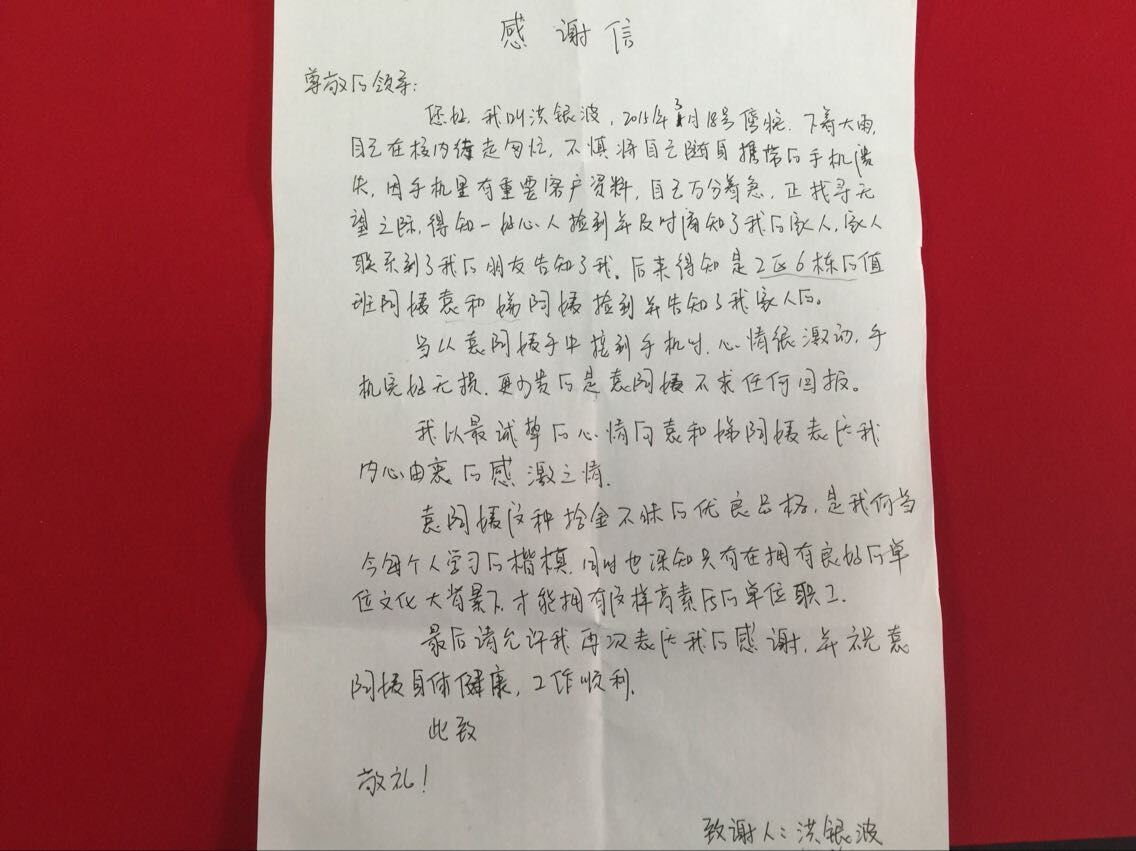 感谢信
尊敬的领导:
您好,我叫洪银波,2015年3月18号傍晚.下着大雨,
自己在校内行走匆忙,不慎将自己随身携带的手机遗
失,因手机里有重要客户资料,自己万分着急,正找寻无
望之际,得知一好心人捡到并及时告知了我的家人,家人
联系到了我的朋友告知了我。后来得知是2区6栋的值
班阿姨袁和娣阿姨捡到并告知了我家人的。
当从袁阿姨手中接到手机时,心情很激动,手
机完好无损.更可贵的是袁阿姨不求任何回报。
我以最诚挚的心情向袁和娣阿姨表达我
内心由衷的感激之情.
袁阿姨这种拾金不昧的优良品格,是我们当
今每个人学习的楷模.同时也深知只有在拥有良好的单
位文化大背景下才能拥有这样高素质的单位职工.
最后请允许我再次表达我的感谢,并祝袁
阿姨身体健康,工作顺利.
此致
敬礼!
致谢人:洪银波